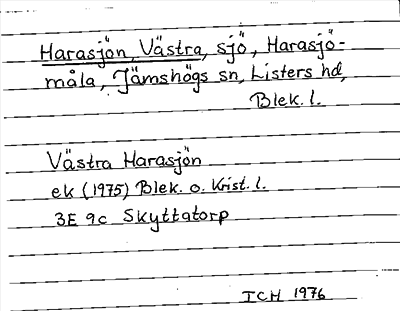 Harasjön, Västra, sjö, Harasjö-
måla, Jämshögs sn, Listers hd,
Blek. l.
Västra Harasjön
ek (1975) Blek. o. Krist. l.
3E 9c Skyttatorp
TCH 1976